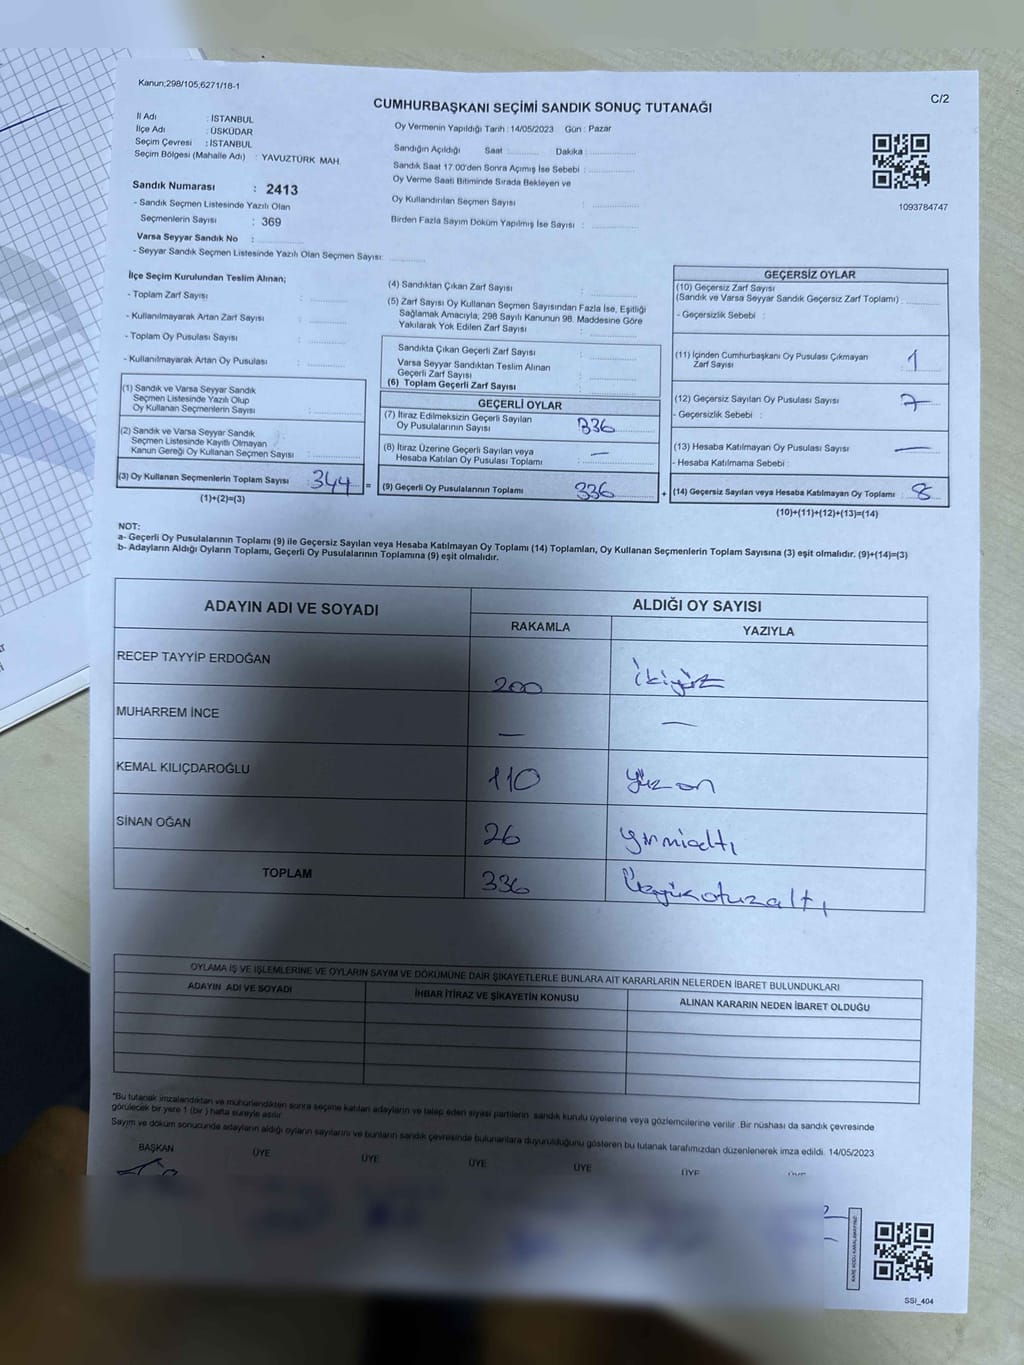 Kanun;298/105;6271/18-1
CUMHURBAŞKANI SEÇİMİ SANDIK SONUÇ TUTANAĞI
C/2
İl Adı : İSTANBUL
İlçe Adı : ÜSKÜDAR
Seçim Çevresi : İSTANBUL
Seçim Bölgesi (Mahalle Adı) : YAVUZTÜRK MAH.
Sandık Numarası : 2413
- Sandık Seçmen Listesinde Yazılı Olan
Seçmenlerin Sayısı : 369
Varsa Seyyar Sandık No :
- Seyyar Sandık Seçmen Listesinde Yazılı Olan Seçmen Sayısı:
Oy Vermenin Yapıldığı Tarih : 14/05/2023 Gün : Pazar
Sandığın Açıldığı Saat : Dakika :
Sandık Saat 17.00'den Sonra Açımış İse Sebebi :
Oy Verme Saati Bitiminde Sırada Bekleyen ve
Oy Kullandırılan Seçmen Sayısı :
Birden Fazla Sayım Döküm Yapılmış İse Sayısı :
1093784747
İlçe Seçim Kurulundan Teslim Alınan;
- Toplam Zarf Sayısı :
- Kullanılmayarak Artan Zarf Sayısı :
- Toplam Oy Pusulası Sayısı :
- Kullanılmayarak Artan Oy Pusulası :
(1) Sandık ve Varsa Seyyar Sandık
Seçmen Listesinde Yazılı Olup
Oy Kullanan Seçmenlerin Sayısı :
(2) Sandık ve Varsa Seyyar Sandık
Seçmen Listesinde Kayıtlı Olmayan
Kanun Gereği Oy Kullanan Seçmen Sayısı :
(3) Oy Kullanan Seçmenlerin Toplam Sayısı : 344 =
(1)+(2)=(3)
(4) Sandıktan Çıkan Zarf Sayısı :
(5) Zarf Sayısı Oy Kullanan Seçmen Sayısından Fazla İse, Eşitliği
Sağlamak Amacıyla; 298 Sayılı Kanunun 98. Maddesine Göre
Yakılarak Yok Edilen Zarf Sayısı :
Sandıkta Çıkan Geçerli Zarf Sayısı :
Varsa Seyyar Sandıktan Teslim Alınan
Geçerli Zarf Sayısı :
(6) Toplam Geçerli Zarf Sayısı :
GEÇERLİ OYLAR
(7) İtiraz Edilmeksizin Geçerli Sayılan
Oy Pusulalarının Sayısı : 336
(8) İtiraz Üzerine Geçerli Sayılan veya
Hesaba Katılan Oy Pusulası Toplamı : —
(9) Geçerli Oy Pusulalarının Toplamı : 336 +
GEÇERSİZ OYLAR
(10) Geçersiz Zarf Sayısı
(Sandık ve Varsa Seyyar Sandık Geçersiz Zarf Toplamı) :
- Geçersizlik Sebebi :
(11) İçinden Cumhurbaşkanı Oy Pusulası Çıkmayan
Zarf Sayısı : 1
(12) Geçersiz Sayılan Oy Pusulası Sayısı : 7
- Geçersizlik Sebebi :
(13) Hesaba Katılmayan Oy Pusulası Sayısı : —
- Hesaba Katılmama Sebebi :
(14) Geçersiz Sayılan veya Hesaba Katılmayan Oy Toplamı : 8
(10)+(11)+(12)+(13)=(14)
NOT:
a- Geçerli Oy Pusulalarının Toplamı (9) ile Geçersiz Sayılan veya Hesaba Katılmayan Oy Toplamı (14) Toplamları, Oy Kullanan Seçmenlerin Toplam Sayısına (3) eşit olmalıdır. (9)+(14)=(3)
b- Adayların Aldığı Oyların Toplamı, Geçerli Oy Pusulalarının Toplamına (9) eşit olmalıdır.
ADAYIN ADI VE SOYADI ALDIĞI OY SAYISI
RAKAMLA YAZIYLA
RECEP TAYYİP ERDOĞAN 200 ikiyüz
MUHARREM İNCE — —
KEMAL KILIÇDAROĞLU 110 yüz on
SİNAN OĞAN 26 yirmialtı
TOPLAM 336 Üçyüzotuzaltı
OYLAMA İŞ VE İŞLEMLERİNE VE OYLARIN SAYIM VE DÖKÜMÜNE DAİR ŞİKAYETLERLE BUNLARA AİT KARARLARIN NELERDEN İBARET BULUNDUKLARI
ADAYIN ADI VE SOYADI İHBAR İTİRAZ VE ŞİKAYETİN KONUSU ALINAN KARARIN NEDEN İBARET OLDUĞU
"Bu tutanak imzalandıktan ve mühürlendikten sonra seçime katılan adayların ve talep eden siyasi partilerin sandık kurulu üyelerine veya gözlemcilerine verilir. Bir nüshası da sandık çevresinde
görülecek bir yere 1 (bir) hafta süreyle asılır.
Sayım ve döküm sonucunde adayların aldığı oyların sayılarını ve bunların sandık çevresinde bulunanlara duyurulduğunu gösteren bu tutanak tarafımızdan düzenlenerek imza edildi. 14/05/2023
BAŞKAN ÜYE ÜYE ÜYE ÜYE ÜYE
SSI_404